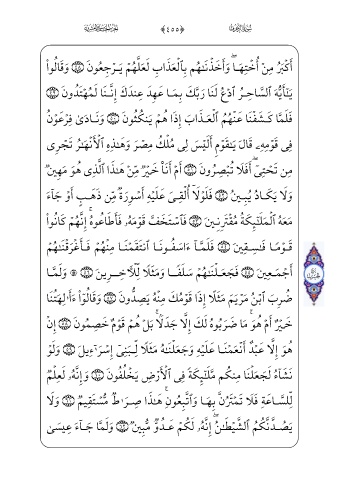 أَكْبَرُ مِنْ أُخْتِهَا وَأَخَذْنَٰهُم بِٱلْعَذَابِ لَعَلَّهُمْ يَرْجِعُونَ وَقَالُوا۟
يَٰٓأَيُّهَ ٱلسَّاحِرُ ٱدْعُ لَنَا رَبَّكَ بِمَا عَهِدَ عِندَكَ إِنَّنَا لَمُهْتَدُونَ
فَلَمَّا كَشَفْنَا عَنْهُمُ ٱلْعَذَابَ إِذَا هُمْ يَنكُثُونَ وَنَادَىٰ فِرْعَوْنُ
فِى قَوْمِهِۦ قَالَ يَٰقَوْمِ أَلَيْسَ لِى مُلْكُ مِصْرَ وَهَٰذِهِ ٱلْأَنْهَٰرُ تَجْرِى
مِن تَحْتِىٓ أَفَلَا تُبْصِرُونَ أَمْ أَنَا۠ خَيْرٌ مِّنْ هَٰذَا ٱلَّذِى هُوَ مَهِينٌ
وَلَا يَكَادُ يُبِينُ فَلَوْلَآ أُلْقِىَ عَلَيْهِ أَسْوِرَةٌ مِّن ذَهَبٍ أَوْ جَآءَ
مَعَهُ ٱلْمَلَٰٓئِكَةُ مُقْتَرِنِينَ فَٱسْتَخَفَّ قَوْمَهُۥ فَأَطَاعُوهُ إِنَّهُمْ كَانُوا۟
قَوْمًا فَٰسِقِينَ فَلَمَّآ ءَاسَفُونَا ٱنتَقَمْنَا مِنْهُمْ فَأَغْرَقْنَٰهُمْ
أَجْمَعِينَ فَجَعَلْنَٰهُمْ سَلَفًا وَمَثَلًا لِّلْءَاخِرِينَ ۞ وَلَمَّا
ضُرِبَ ٱبْنُ مَرْيَمَ مَثَلًا إِذَا قَوْمُكَ مِنْهُ يَصِدُّونَ وَقَالُوٓا۟ ءَأَٰلِهَتُنَا
خَيْرٌ أَمْ هُوَ مَا ضَرَبُوهُ لَكَ إِلَّا جَدَلًۢا بَلْ هُمْ قَوْمٌ خَصِمُونَ إِنْ
هُوَ إِلَّا عَبْدٌ أَنْعَمْنَا عَلَيْهِ وَجَعَلْنَٰهُ مَثَلًا لِّبَنِىٓ إِسْرَٰٓءِيلَ وَلَوْ
نَشَآءُ لَجَعَلْنَا مِنكُم مَّلَٰٓئِكَةً فِى ٱلْأَرْضِ يَخْلُفُونَ وَإِنَّهُۥ لَعِلْمٌ
لِّلسَّاعَةِ فَلَا تَمْتَرُنَّ بِهَا وَٱتَّبِعُونِ هَٰذَا صِرَٰطٌ مُّسْتَقِيمٌ وَلَا
يَصُدَّنَّكُمُ ٱلشَّيْطَٰنُ إِنَّهُۥ لَكُمْ عَدُوٌّ مُّبِينٌ وَلَمَّا جَآءَ عِيسَىٰ